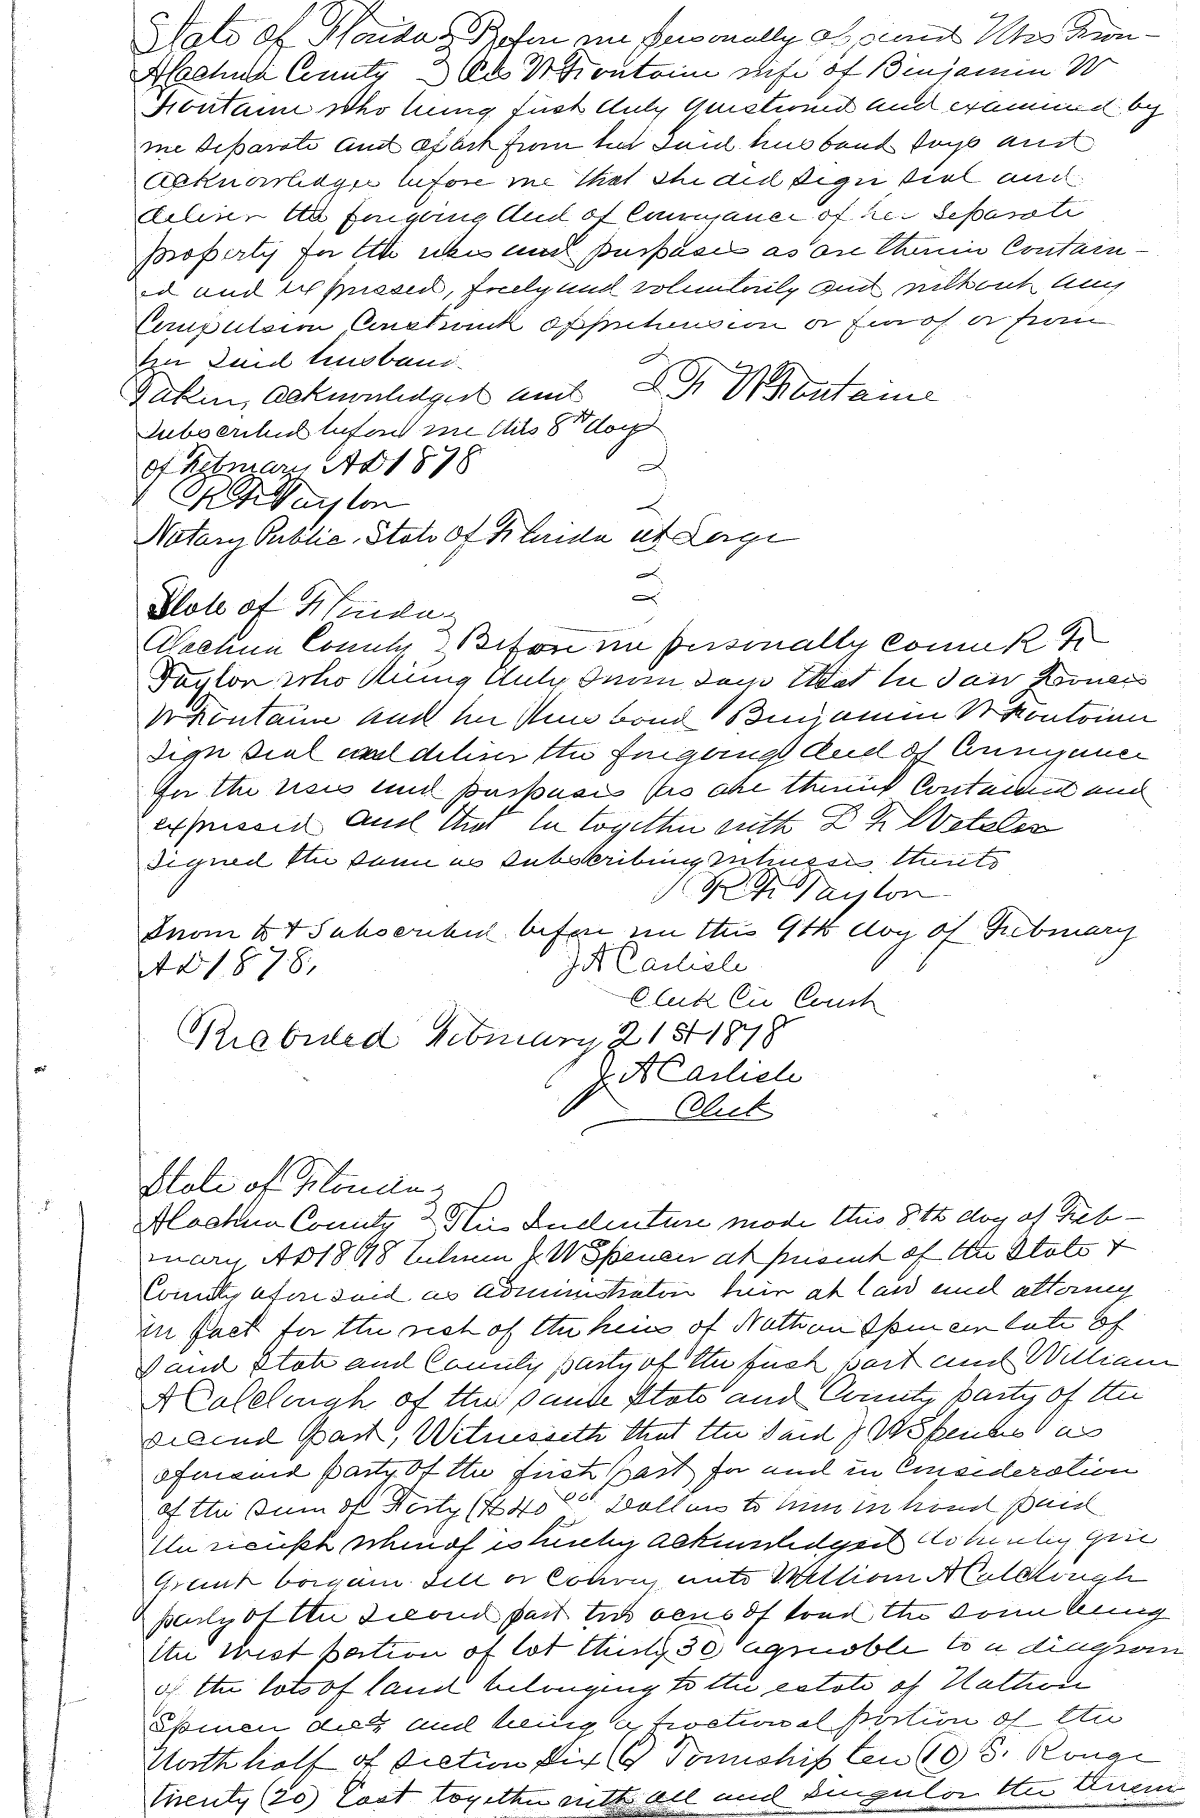 State of Florida } Before me personally appeared Mrs Fran-
Alachua County } ces W Fontaine wife of Benjamin W
Fontaine who being first duly questioned and examined by
me separate and apart from her said husband says and
acknowledges before me that she did sign seal and
deliver the foregoing deed of Conveyance of her separate
property for the uses and purposes as are therein contain-
ed and expressed, freely and voluntarily and without any
Compulsion Constraint apprehension or fear of or from
her said husband.
Taken, acknowledged and F W Fontaine
subscribed before me this 8th day
of February AD 1878
R F Taylor
Notary Public. State of Florida at Large
State of Florida }
Alachua County } Before me personally came R F
Taylor who being duly sworn says that he saw Frances
W Fontaine and her husband Benjamin W Fontaine
sign seal and deliver the foregoing deed of Conveyance
for the uses and purposes as are therein contained and
expressed and that he together with L F Wetzler
signed the same as subscribing witnesses thereto
R F Taylor
Sworn to & Subscribed before me this 9th day of February
AD 1878, J A Carlisle
Clerk Cir Court
Recorded February 21st 1878
J A Carlisle
Clerk
State of Florida }
Alachua County } This Indenture made this 8th day of Feb-
ruary AD 1878 between J W Spencer at present of the State &
County aforesaid as administrator heir at law and attorney
in fact for the rest of the heirs of Nathan Spencer late of
said State and County party of the first part and William
A Colclough of the same State and County party of the
second part, Witnesseth that the said J W Spencer as
aforesaid party of the first part for and in Consideration
of the sum of Forty ($40 00 Dollars to him in hand paid
the receipt whereof is hereby acknowledged do hereby give
grant bargain sell or convey unto William A Colclough
party of the second part two acres of land the same being
the West portion of lot thirty 30) agreeable to a diagram
of the lots of land belonging to the estate of Nathan
Spencer decd and being a fractional portion of the
North half of Section Six (6) Township ten (10) S. Range
twenty (20) East together with all and singular the tenem